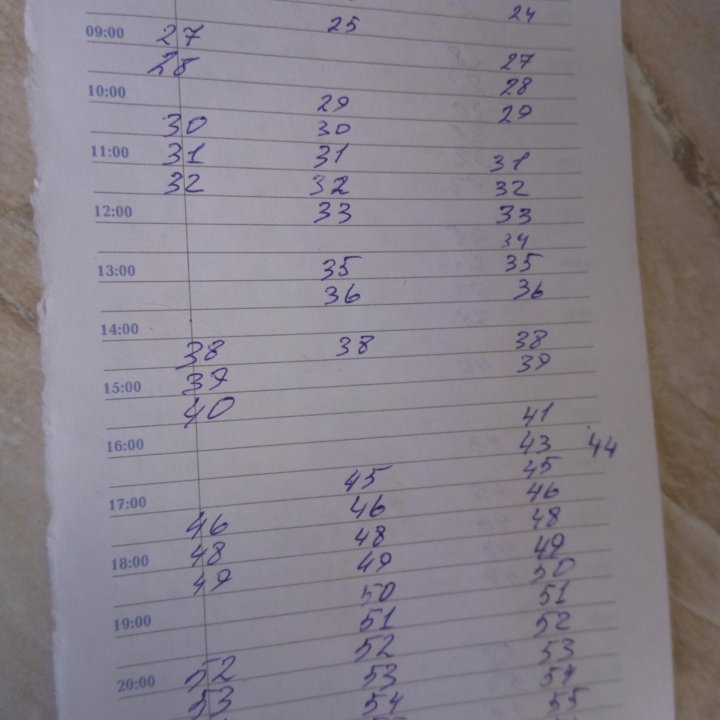 24
09:00 27 25
28 27
28
10:00 29 29
30 30
11:00 31 31 31
32 32 32
12:00 33 33
34
13:00 35 35
36 36
14:00
38 38 38
39 39
15:00
40 41
16:00 43 44
45 45
17:00 46 46
46 48 48
18:00 48 49 49
49 50 50
19:00 51 51
52 52
20:00 52 53 53
53 54 54
55